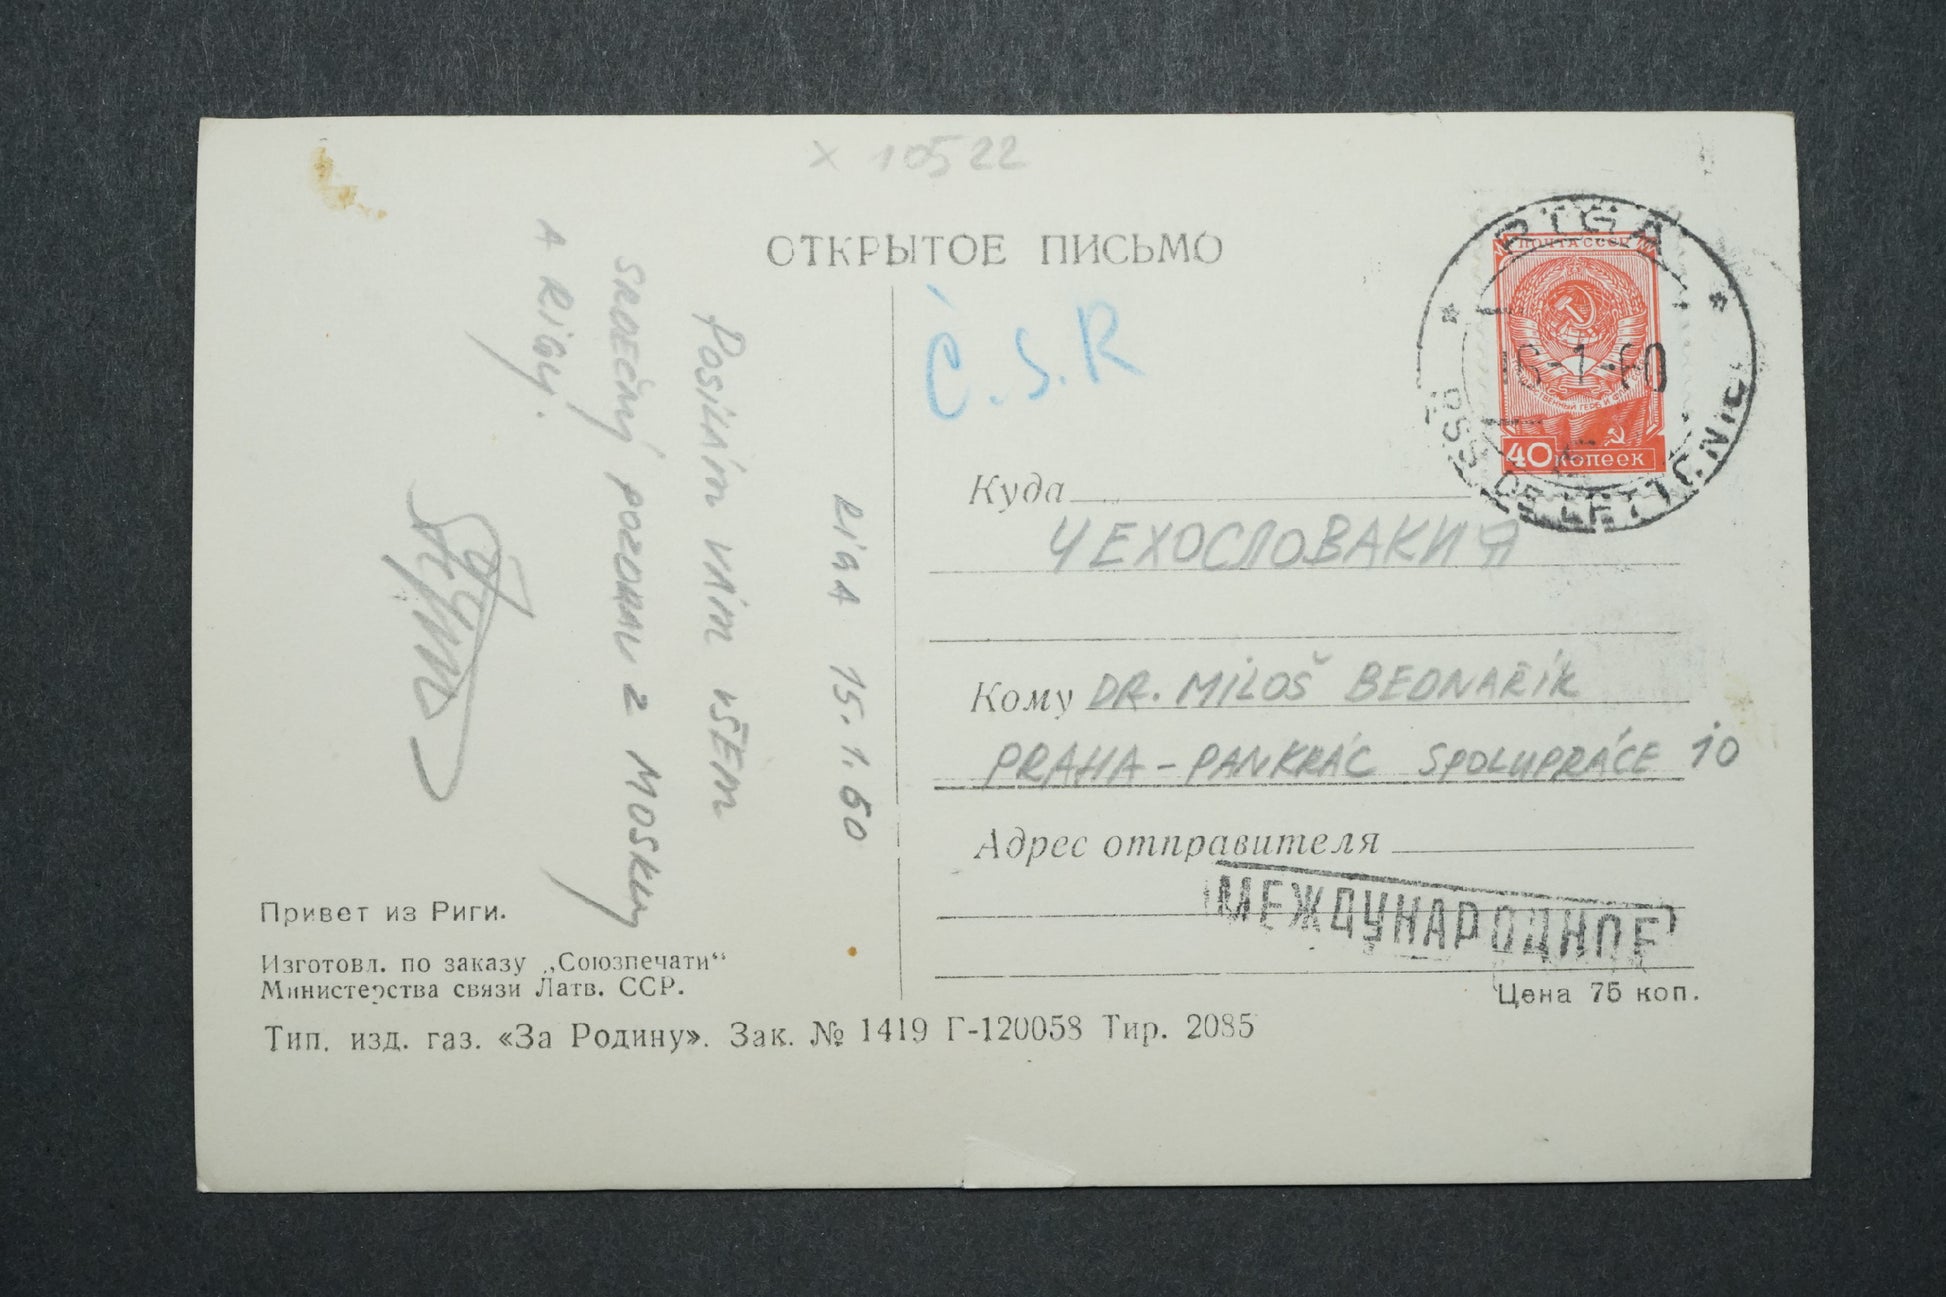 × 10522
ОТКРЫТОЕ ПИСЬМО
Č.S.R
RIGA
ПОЧТА СССР
16-1-60
40 КОПЕЕК
RSS DE LETTONIE
Куда
ЧЕХОСЛОВАКИЯ
Кому DR. MILOŠ BEDNAŘÍK
PRAHA-PANKRÁC SPOLUPRÁCE 10
Адрес отправителя
МЕЖДУНАРОДНОЕ
Цена 75 коп.
RIGA 15.1.60
Posílám vám všem
SRDEČNÝ POZDRAV Z MOSKVY
A RIGY.
Привет из Риги.
Изготовл. по заказу „Союзпечати“
Министерства связи Латв. ССР.
Тип. изд. газ. «За Родину». Зак. № 1419 Г-120058 Тир. 2085